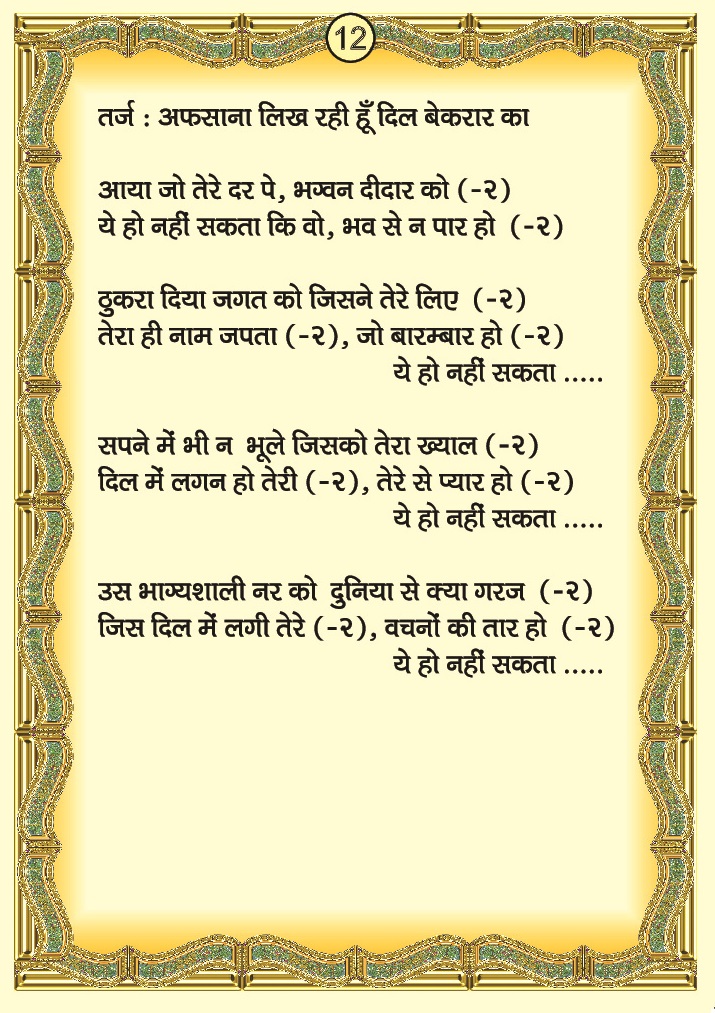 12
तर्ज : अफसाना लिख रही हूँ दिल बेकरार का
आया जो तेरे दर पे, भग्वन दीदार को (-२)
ये हो नहीं सकता कि वो, भव से न पार हो (-२)
ठुकरा दिया जगत को जिसने तेरे लिए (-२)
तेरा ही नाम जपता (-२), जो बारम्बार हो (-२)
ये हो नहीं सकता .....
सपने में भी न भूले जिसको तेरा ख्याल (-२)
दिल में लगन हो तेरी (-२), तेरे से प्यार हो (-२)
ये हो नहीं सकता .....
उस भाग्यशाली नर को दुनिया से क्या गरज (-२)
जिस दिल में लगी तेरे (-२), वचनों की तार हो (-२)
ये हो नहीं सकता .....